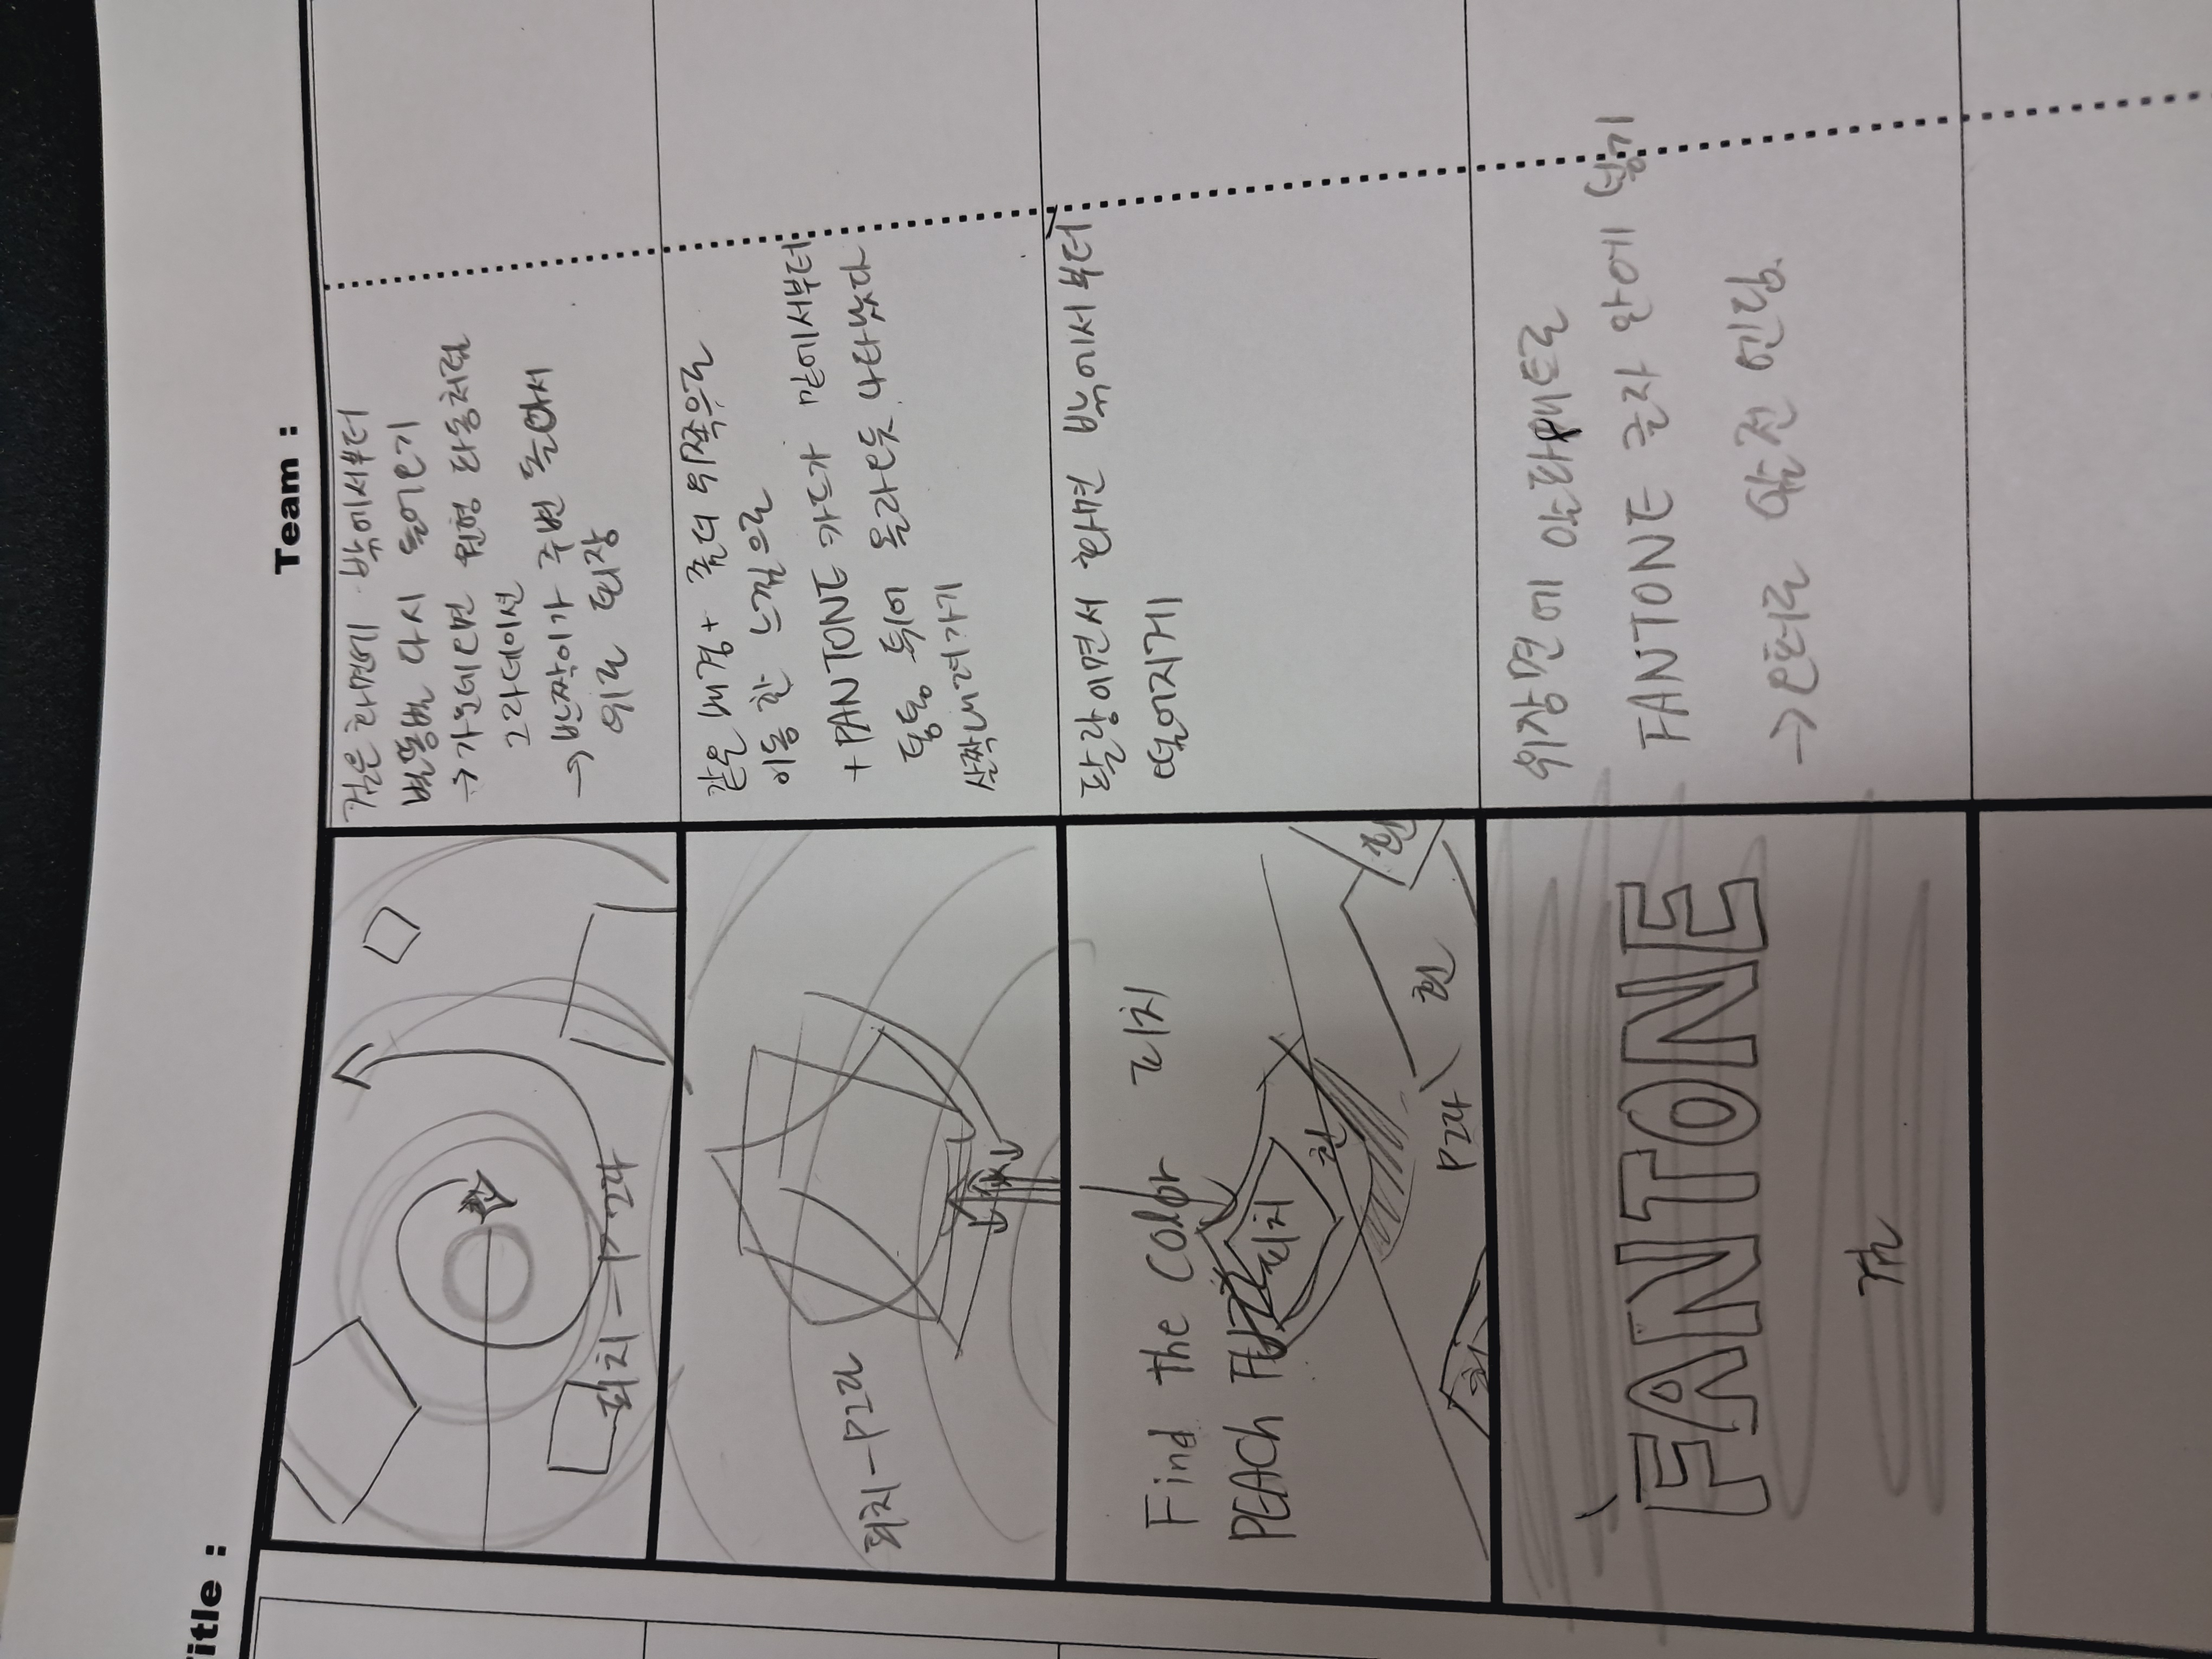 Title :
Team :
피치 - P그라
검은 화면에 밖에서부터
별똥별 다시 들어오기
→ 가운데오면 원형 파동처럼
그라데이션
→ 반짝이가 주변 돌아서
위로 퇴장
피치 - P그라
같은 배경 + 좀더 위쪽으로
이동한 느낌으로
+ PANTONE 카드가 밑에서부터
통통 튀어 올라오듯 나타났다
살짝 내려가기
Find the color 피치
PEACh FUZZ
피치
흰
흰
흰
P그라
흰
팔랑이면서 화면 밖에서부터
떨어지게
FANTONE
검
위장면에 알파매트로
FANTONE 글자 안에 넣기
→ 암전 엔딩.